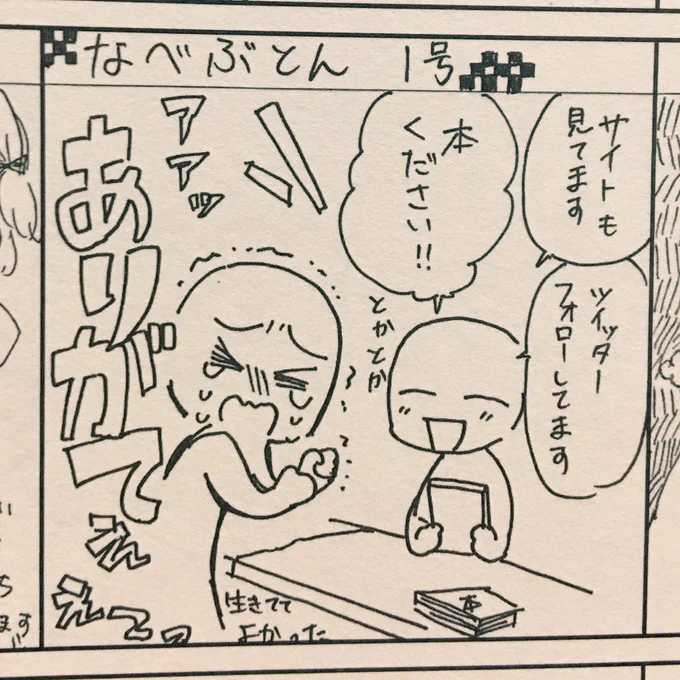 なべぶとん 1号
サイトも
見てます
ツイッター
フォローしてます
本
ください!!
とかとか
アァァッ
ありがてええぇ
生きてて
よかった
本